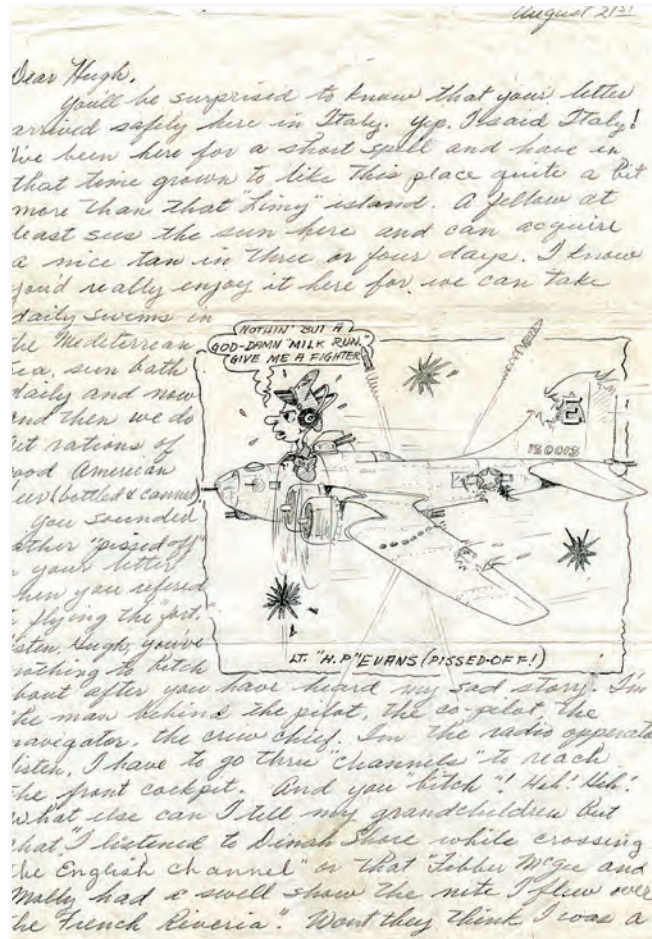 August 21st
Dear Hugh,
You'll be surprised to know that your letter
arrived safely here in Italy. Yep. I said Italy!
I've been here for a short spell and have in
that time grown to like this place quite a bit
more than that "Limy" island. A fellow at
least sees the sun here and can acquire
a nice tan in three or four days. I know
you'd really enjoy it here for we can take
daily swims in
the Mediterrean
sea, sun bath
daily and now
and then we do
get rations of
good American
beer (bottled & canned)
You sounded
rather "pissed off"
in your letter
when you refered
to flying the "fort."
Listen, Hugh, you've
nothing to bitch
about after you have heard my sad story. I'm
the man behind the pilot, the co-pilot, the
navigator, the crew chief. I'm the radio opperator
listen, I have to go thru "channels" to reach
the front cockpit. And you "bitch"! Heh! Heh!
What else can I tell my grandchildren but
that "I listened to Dinah Shore while crossing
the English channel" or that "Fibber McGee and
Molly had a swell show the nite I flew over
the French Riveria". Wont they think I was a
NOTHIN' BUT A
GOD-DAMN "MILK RUN."
GIVE ME A FIGHTER
130013
LT. "H.P" EVANS (PISSED-OFF!)